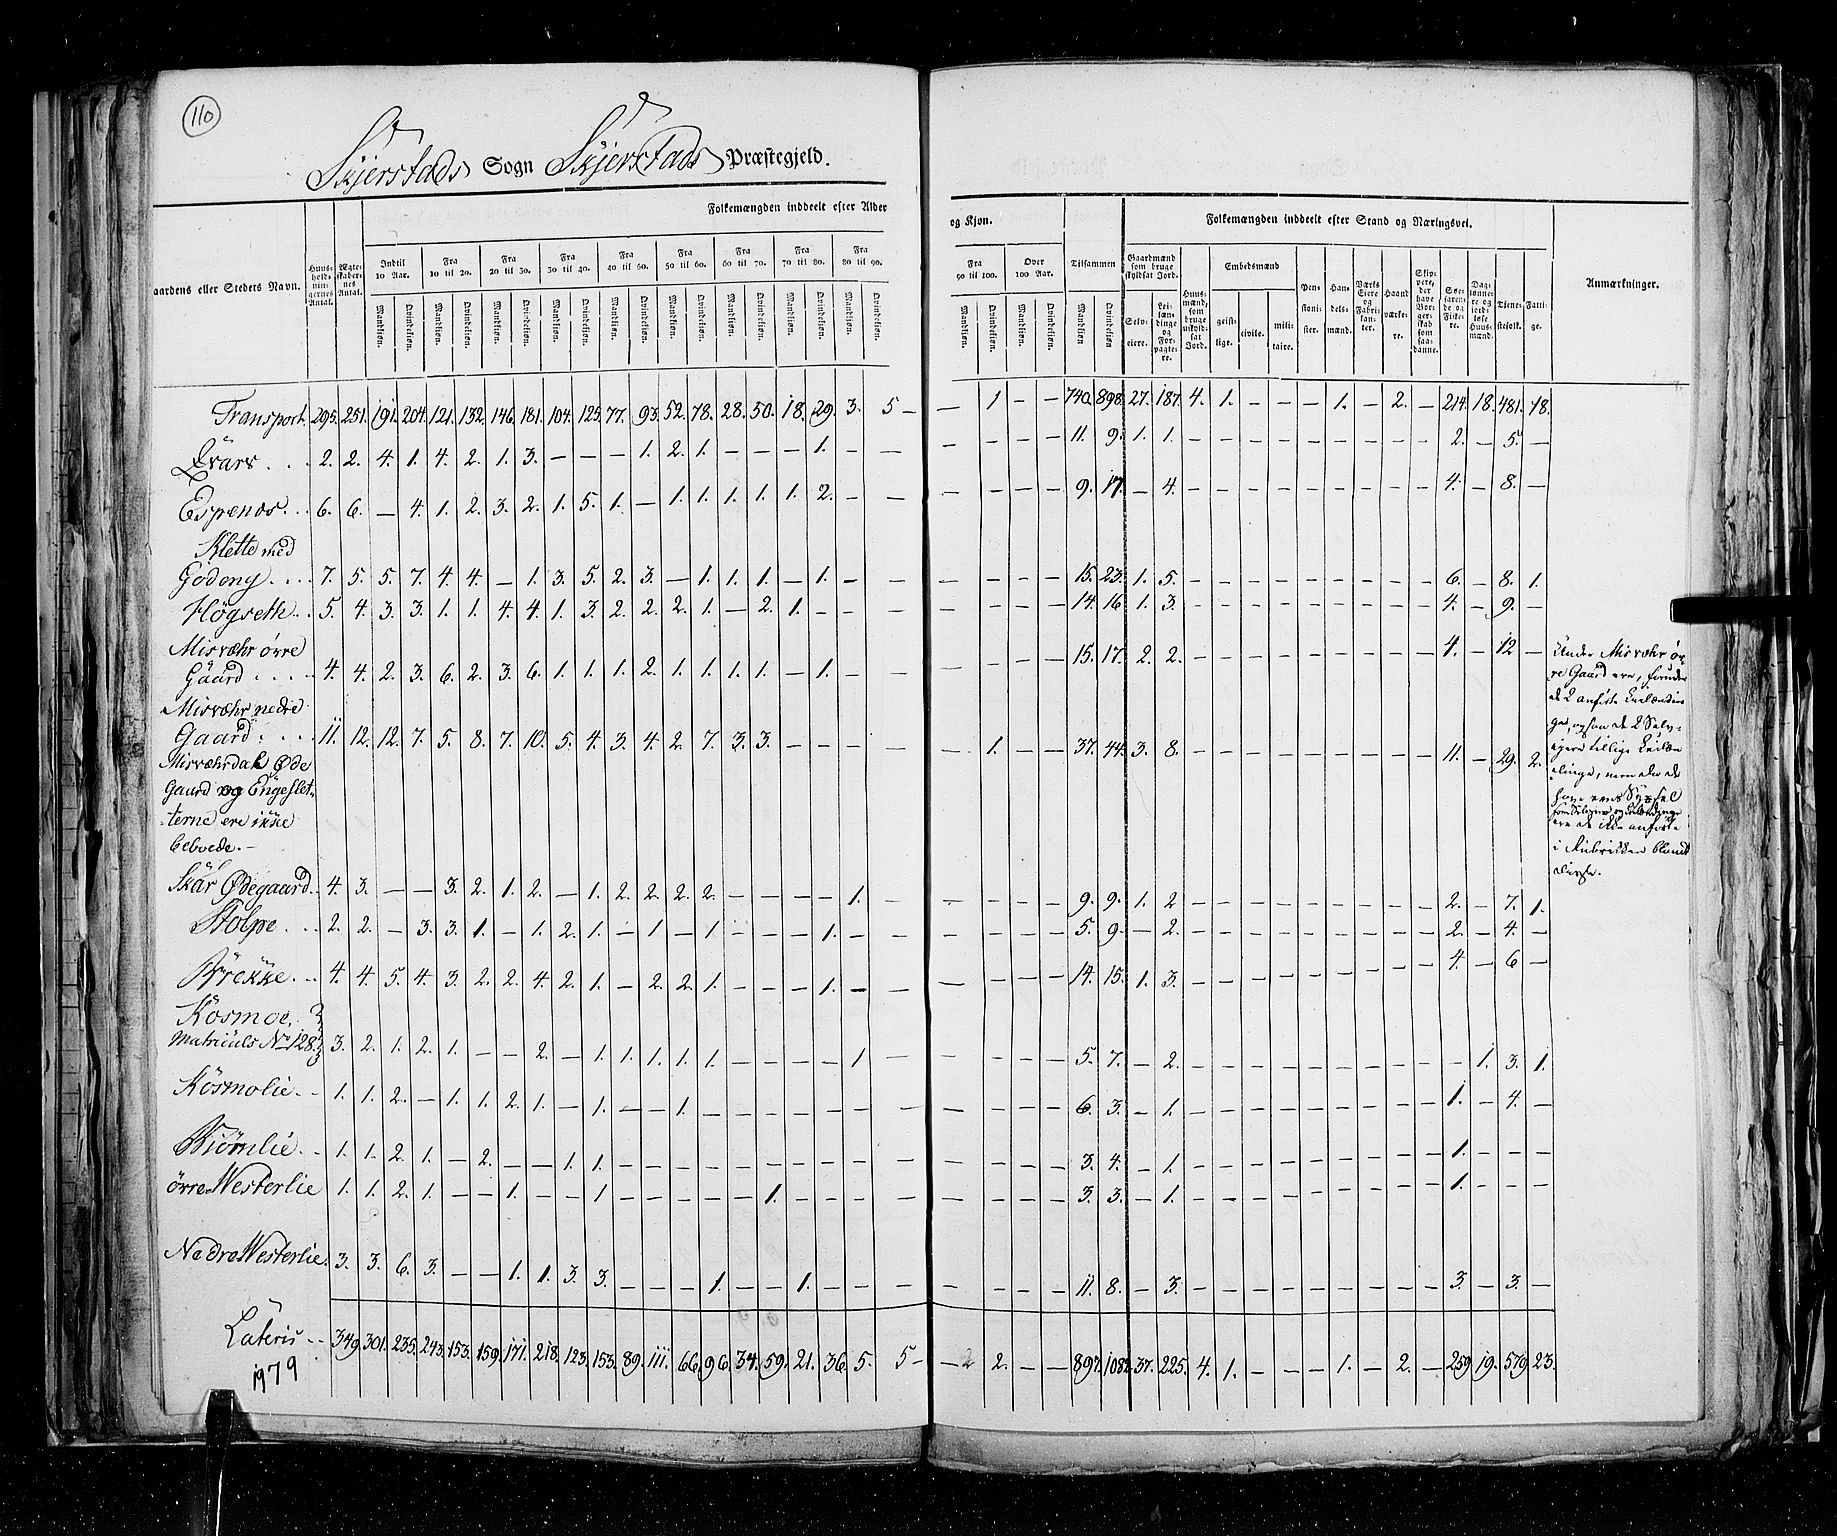 110
Skjerstads Sogn Skjerstads Præstegjeld.
Folkemængden inddeelt efter Alder og Kjøn. Folkemængden inddeelt efter Stand og Næringsvei.
Gaardens eller Stedets Navn. Huusholdningernes Antal. Ægteskabernes Antal. Indtil 10 Aar. Fra 10 til 20. Fra 20 til 30. Fra 30 til 40. Fra 40 til 50. Fra 50 til 60. Fra 60 til 70. Fra 70 til 80. Fra 80 til 90. Fra 90 til 100. Over 100 Aar. Tilsammen Gaardmænd som bruge skyldsat Jord. Huusmænd, som bruge uskyldsat Jord. Embedsmænd Pensionister. Handelsmænd. Værks Eiere og Fabrikanter. Haandværkere. Skippere, der have Borgerskab som saadanne. Søefarende og Fiskere. Daglønnere og jordløse Huusmænd. Tjenestefolk. Fattige. Anmærkninger.
Mandkjøn. Qvindekjøn. Mandkjøn. Qvindekjøn. Mandkjøn. Qvindekjøn. Mandkjøn. Qvindekjøn. Mandkjøn. Qvindekjøn. Mandkjøn. Qvindekjøn. Mandkjøn. Qvindekjøn. Mandkjøn. Qvindekjøn. Mandkjøn. Qvindekjøn. Mandkjøn. Qvindekjøn. Mandkjøn. Qvindekjøn. Mandkjøn Qvindekjøn Selveiere. Leilændinge og Forpagtere. geistlige. civile. militaire.
Transport. 295. 251. 191. 204. 121. 132. 146. 181. 104. 125. 77. 93. 52. 78. 28. 50. 18. 29. 3. 5 — — 1. — — 740. 898. 27. 187. 4. 1. — — — 1. — 2. — 214. 18. 481. 18.
2. 2. 4. 1. 4. 2. 1. 3. — — — 1. 2. 1. — — — 1. — — — — — — 11. 9. 1. 1. — — — — — — — — — 2. — 5. —
Espenes. . 6. 6. — 4. 1. 2. 3. 2. 1. 5. 1. — 1. 1. 1. 1. 1. 2. — — — — — — 9. 17. — 4. — — — — — — — — — 4. — 8. —
Klette med
Godøng . . . 7. 5. 5. 7. 4. 4. — 1. 3. 5. 2. 3. — 1. 1. 1. — 1. — — — — — — 15. 23. 1. 5. — — — — — — — — — 6. — 8. 1.
Högseth. . 5. 4. 3. 3. 1. 1. 4. 4. 1. 3. 2. 2. 2. 1. — 2. 1. — — — — — — — 14. 16. 1. 3. — — — — — — — — — 4. — 9. —
Misvæhr øvre
Gaard . . . . 4. 4. 2. 3. 6. 2. 3. 6. 1. 1. 1. 2. 1. 1. 1. 1. — 1. — — — — — — 15. 17. 2. 2. — — — — — — — — — 4. — 12 —
Misvæhr nedre
Gaard. . . . 11. 12. 12. 7. 5. 8. 7. 10. 5. 4. 3. 4. 2. 7. 3. 3. — — — — — 1. — — 37. 44. 3. 8. — — — — — — — — — 11. — 29. 2.
Misvæhrdal Øde
Gaard og Engeslet-
terne ere ikke
beboede. —
Skar Ødegaard. . 4. 3. — — 3. 2. 1. 2. — 1. 2. 2. 2. 2. — — — — 1. — — — — — 9. 9. 1. 2 — — — — — — — — — 2. — 7. 1.
Stolpe . . . 2. 2. — 3. 3. 1. — 1. 2. 1. — 1. — 1. — — — 1. — — — — — — 5. 9. — 2. — — — — — — — — — 2. — 4. —
Brekke. . . 4. 4. 5. 4. 3. 2. 2. 4. 2. 1. — 2. 2. 1. — — — 1. — — — — — — 14. 15. 1. 3. — — — — — — — — — 4. — 6 —
Kosmoe,
Matriculs No 128. 3. 2. 1. 2. 1. — — 2. — 1. 1. 1. 1. 1. — — — — 1 — — — — — 5. 7. — 2. — — — — — — — — — — 1. 3. 1.
Kosmolie. . 1. 1. 2. — 1. 1. 2. 1. — 1. — — 1. — — — — — — — — — — — 6. 3. — 1. — — — — — — — — — 1. — 4. —
1. 1. 2. 1. — 2. — — 1. 1. — — — — — — — — — — — — — — 3. 4. — 1. — — — — — — — — — 1. — — —
øvre Westerlie 1. 1. 2. 1. — — 1. — — 1 — — — — — 1. — — — — — — — — 3. 3. — 1. — — — — — — — — — 1. — — —
Nedre Westerlie. 3. 3. 6. 3. — — 1. 1. 3. 3. — — — 1. — — 1. — — — — — — — 11. 8. — 3. — — — — — — — — — 3. — 3. —
Lateris . . 349. 301. 235. 243. 153. 159. 171. 218. 123. 153. 89. 111. 66. 96. 34. 59. 21. 36. 5. 5 — — 2. — — 897. 1082. 37. 225. 4. 1. — — — 1. — 2. — 259. 19. 579. 23.
1979
Under Misvæhr øv-
re Gaard ere, foruden
de 2 anførte Leilændin-
ge, ogsaa de 2 Selv-
eiere tillige Leilæn-
dinge, men da de
have eens Syssel
som Selveiere og Leilændinge
ere de ikke anførte
i Rubrikken blandt
disse.